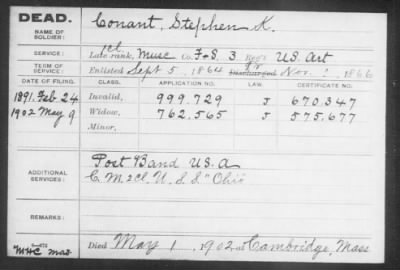 DEAD.
NAME OF SOLDIER: Conant, Stephen K.
SERVICE: Late rank, 1cl Musc Co. F+S, 3 Reg't US. Art
TERM OF SERVICE: Enlisted Sept 5, 1864 Discharged Nov. 1866
DATE OF FILING. CLASS. APPLICATION NO. LAW. CERTIFICATE NO.
1891. Feb 24 Invalid, 999.729 J 670,347
1902 May 9 Widow, 762,565 J 575,677
Minor,
ADDITIONAL SERVICES: Post Band U.S.A
C M 2Cl. U.S.S "Ohio
REMARKS:
Died May 1, 1902 at Cambridge, Mass